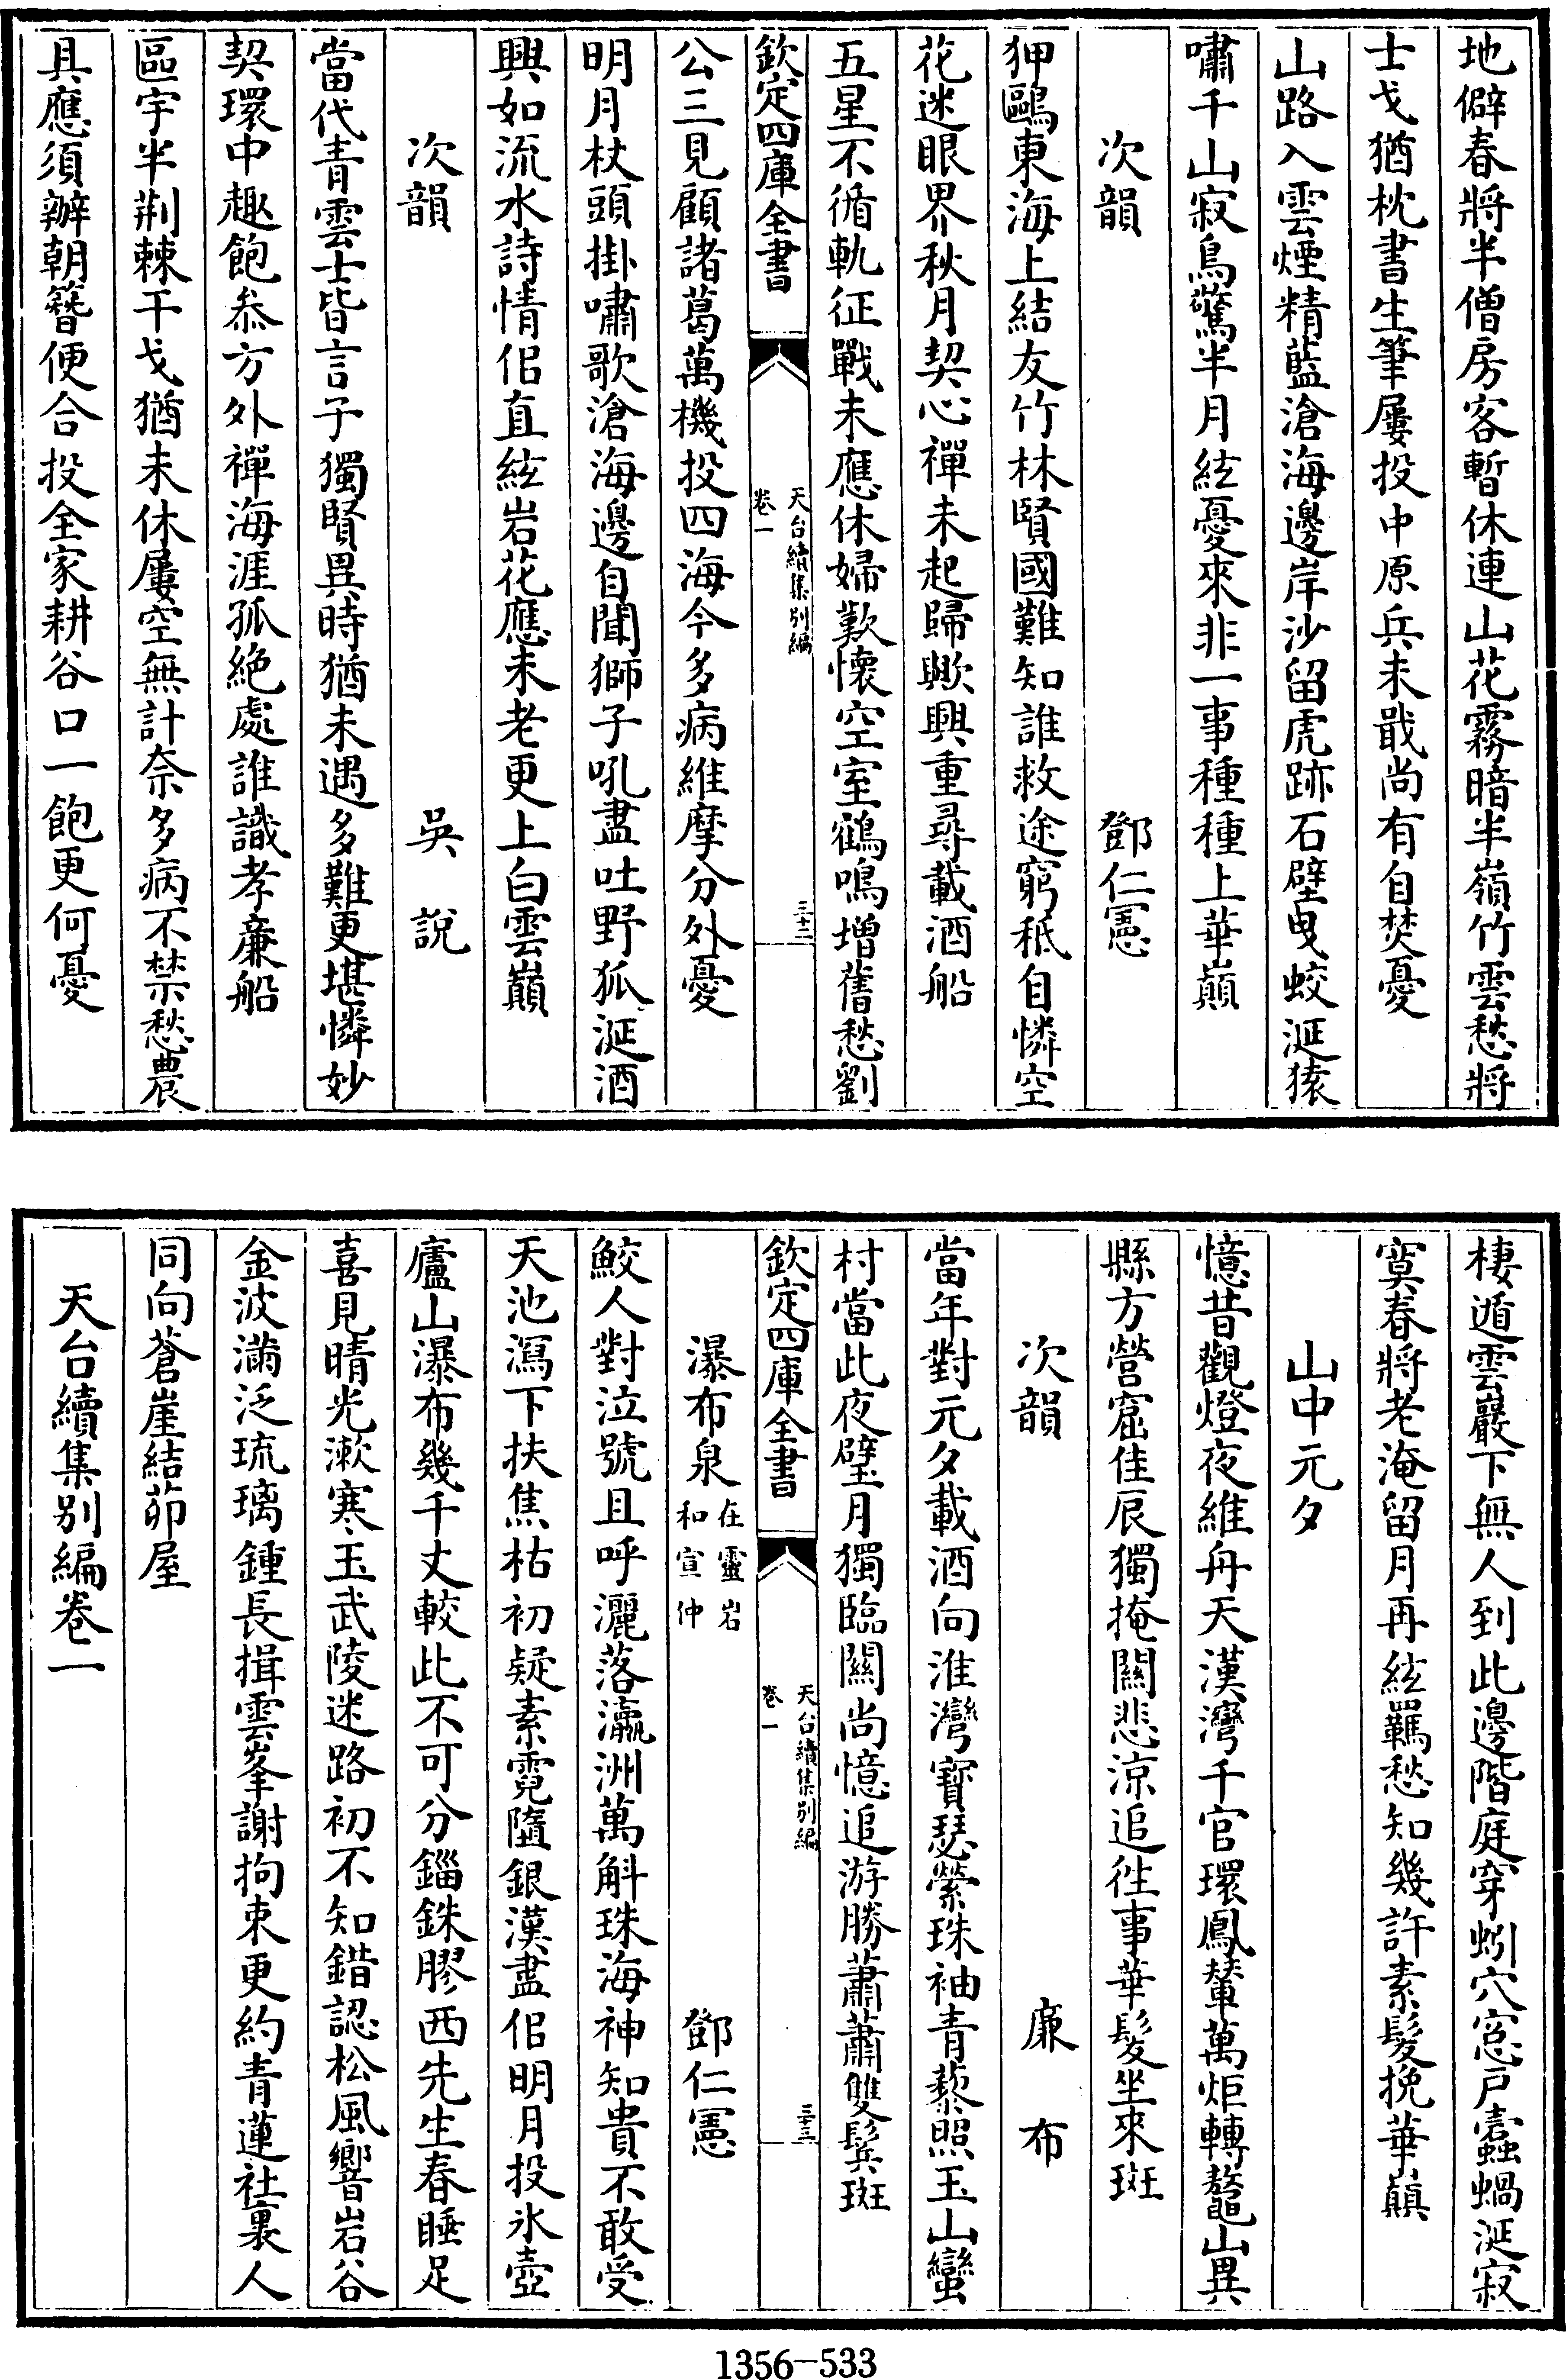 地僻春將半僧房客暫休連山花霧暗半嶺竹雲愁將
士戈猶枕書生筆屢投中原兵未戢尚有自焚憂
山路入雲煙精藍滄海邊岸沙留虎跡石壁曳蛟涎猿
嘯千山寂鳥驚半月絃憂來非一事種種上華巔
次韻 鄧仁憲
狎鷗東海上結友竹林賢國難知誰救途窮秪自憐空
花迷眼界秋月契心禪未起歸歟興重尋載酒船
五星不循軌征戰未應休婦歎懷空室鶴鳴增舊愁劉
欽定四庫全書 天台續集別編 卷一 三十二
公三見顧諸葛萬機投四海今多病維摩分外憂
明月杖頭掛嘯歌滄海邊自聞獅子吼盡吐野狐涎酒
興如流水詩情侶直絃岩花應未老更上白雲巔
次韻 吳說
當代青雲士皆言子獨賢異時猶未遇多難更堪憐妙
契環中趣飽叅方外禪海涯孤絕處誰識孝廉船
區宇半荆棘干戈猶未休屢空無計奈多病不禁愁農
具應須辦朝簪便合投全家耕谷口一飽更何憂
棲遁雲巖下無人到此邊階庭穿蚓穴窓戶蠹蝸涎寂
寞春將老淹留月再絃羈愁知幾許素髮挽華巔
山中元夕
憶昔觀燈夜維舟天漢灣千官環鳳輦萬炬轉鼇山異
縣方營窟佳辰獨掩關悲涼追徃事華髮坐來斑
次韻 廉布
當年對元夕載酒向淮灣寶瑟縈珠袖青藜照玉山蠻
村當此夜璧月獨臨關尚憶追游勝蕭蕭雙鬂斑
欽定四庫全書 天台續集別編 卷一 三十三
瀑布泉 在靈岩和宣仲 鄧仁憲
鮫人對泣號且呼灑落瀛洲萬斛珠海神知貴不敢受
天池瀉下扶焦枯初疑素霓隨銀漢盡侶明月投氷壺
廬山瀑布幾千丈較此不可分錙銖膠西先生春睡足
喜見晴光漱寒玉武陵迷路初不知錯認松風響岩谷
金波滿泛琉璃鍾長揖雲峯謝拘束更約青蓮社裏人
同向蒼崖結茆屋
天台續集別編卷一
1356-533